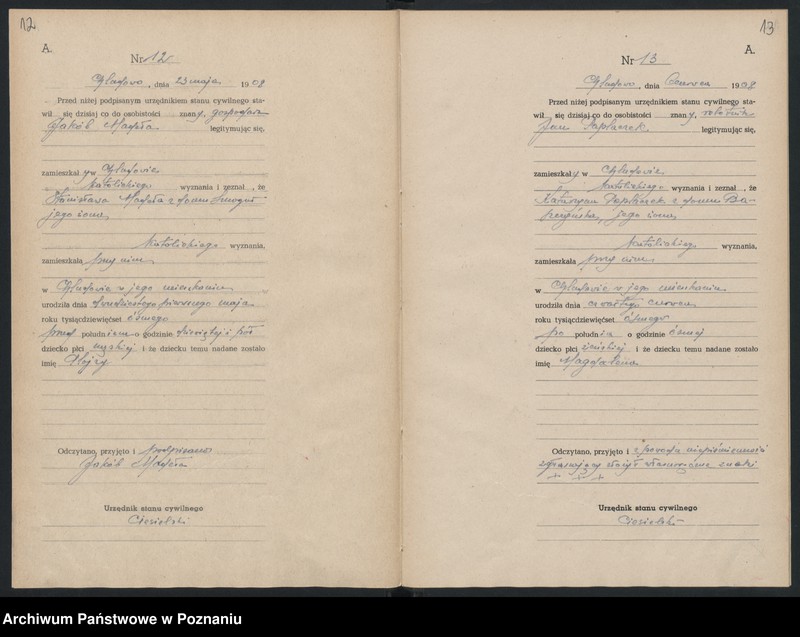 12
A.
Nr 12
, dnia 23 maja 1908
Przed niżej podpisanym urzędnikiem stanu cywilnego sta-
wił się dzisiaj co do osobistości znany, gospodarz
Jakób legitymując się,
zamieszkały w
katolickiego wyznania i zeznał , że
Stanisława z domu
jego żona,
katolickiego wyznania,
zamieszkała przy nim,
w w jego mieszkaniu
urodziła dnia dwudziestego pierwszego maja
roku tysiącdziewięćset ósmego
przed południem o godzinie dziewiątej i pół
dziecko płci męskiej i że dziecku temu nadane zostało
imię Alojzy
Odczytano, przyjęto i podpisano
Jakób
Urzędnik stanu cywilnego
Ciesielski
13
A.
Nr 13
, dnia Czerwca 1908
Przed niżej podpisanym urzędnikiem stanu cywilnego sta-
wił się dzisiaj co do osobistości znany, robotnik
Jan legitymując się,
zamieszkały w
katolickiego wyznania i zeznał , że
Katarzyna z domu
jego żona,
katolickiego wyznania,
zamieszkała przy nim,
w w jego mieszkaniu
urodziła dnia czwartego czerwca
roku tysiącdziewięćset ósmego
po południu o godzinie ósmej
dziecko płci żeńskiej i że dziecku temu nadane zostało
imię Magdalena
Odczytano, przyjęto i z powodu niepiśmienności
własnoręczne znaki
+ + +
Urzędnik stanu cywilnego
Ciesielski
Archiwum Państwowe w Poznaniu